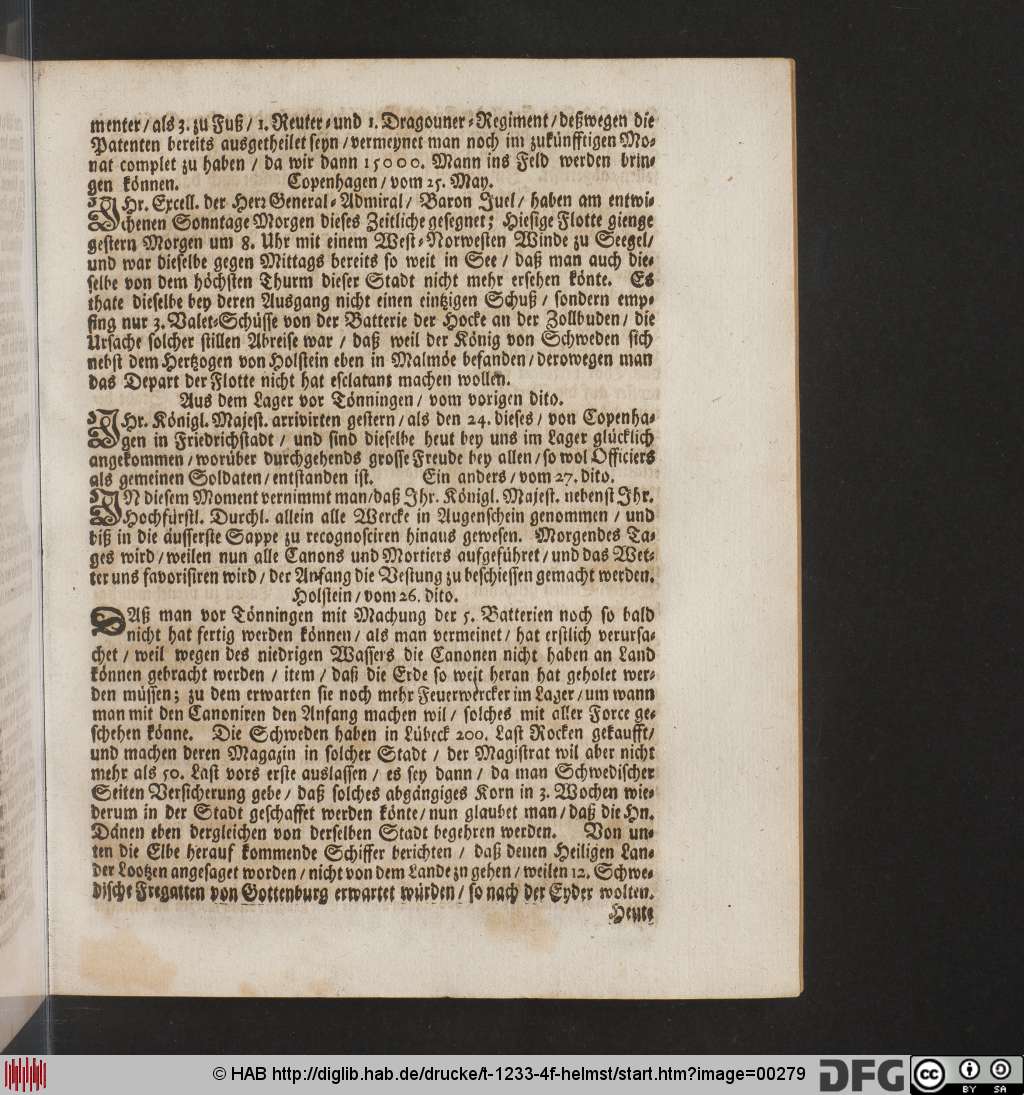 menter / als 3. zu Fuß / 1. Reuter- und 1. Dragouner-Regiment / deßwegen die
Patenten bereits ausgetheilet seyn / vermeynet man noch im zukünfftigen Mo-
nat complet zu haben / da wir dann 15000. Mann ins Feld werden brin-
gen können. Copenhagen / vom 25. May.
IHr. Excell. der Herr General-Admiral / Baron Juel / haben am entwi-
chenen Sonntage Morgen dieses Zeitliche gesegnet; Hiesige Flotte gienge
gestern Morgen um 8. Uhr mit einem West-Norwesten Winde zu Seegel /
und war dieselbe gegen Mittags bereits so weit in See / daß man auch die-
selbe von dem höchsten Thurm dieser Stadt nicht mehr ersehen könte. Es
thate dieselbe bey deren Ausgang nicht einen eintzigen Schuß / sondern emp-
fing nur 3. Valet-Schüsse von der Batterie der Hocke an der Zollbuden / die
Ursache solcher stillen Abreise war / daß weil der König von Schweden sich
nebst dem Hertzogen von Holstein eben in Malmöe befanden / derowegen man
das Depart der Flotte nicht hat esclatant machen wollen.
Aus dem Lager vor Tönningen / vom vorigen dito.
IHr. Königl. Majest. arrivirten gestern / als den 24. dieses / von Copenha-
gen in Friedrichstadt / und sind dieselbe heut bey uns im Lager glücklich
angekommen / worüber durchgehends grosse Freude bey allen / so wol Officiers
als gemeinen Soldaten / entstanden ist. Ein anders / vom 27. dito.
IN diesem Moment vernimmt man / daß Ihr. Königl. Majest. nebenst Ihr.
Hochfürstl. Durchl. allein alle Wercke in Augenschein genommen / und
biß in die äusserste Sappe zu recognosciren hinaus gewesen. Morgendes Ta-
ges wird / weilen nun alle Canons und Mortiers aufgeführet / und das Wet-
ter uns favorisiren wird / der Anfang die Vestung zu beschiessen gemacht werden.
Holstein / vom 26. dito.
DAß man vor Tönningen mit Machung der 5. Batterien noch so bald
nicht hat fertig werden können / als man vermeinet / hat erstlich verursa-
chet / weil wegen des niedrigen Wassers die Canonen nicht haben an Land
können gebracht werden / item / daß die Erde so weit heran hat geholet wer-
den müssen; zu dem erwarten sie noch mehr Feuerwercker im Lager / um wann
man mit den Canoniren den Anfang machen wil / solches mit aller Force ge-
schehen könne. Die Schweden haben in Lübeck 200. Last Rocken gekaufft /
und machen deren Magazin in solcher Stadt / der Magistrat wil aber nicht
mehr als 50. Last vors erste auslassen / es sey dann / da man Schwedischer
Seiten Versicherung gebe / daß solches abgängiges Korn in 3. Wochen wie-
derum in der Stadt geschaffet werden könte / nun glaubet man / daß die Hn.
Dänen eben dergleichen von derselben Stadt begehren werden. Von un-
ten die Elbe herauf kommende Schiffer berichten / daß denen Heiligen Lan-
der Lootzen angesaget worden / nicht von dem Lande zu gehen / weilen 12. Schwe-
dische Fregatten von Gottenburg erwartet würden / so nach der Eyder wolten.
Heute
© HAB http://diglib.hab.de/drucke/t-1233-4f-helmst/start.htm?image=00279
DFG
cc
BY SA